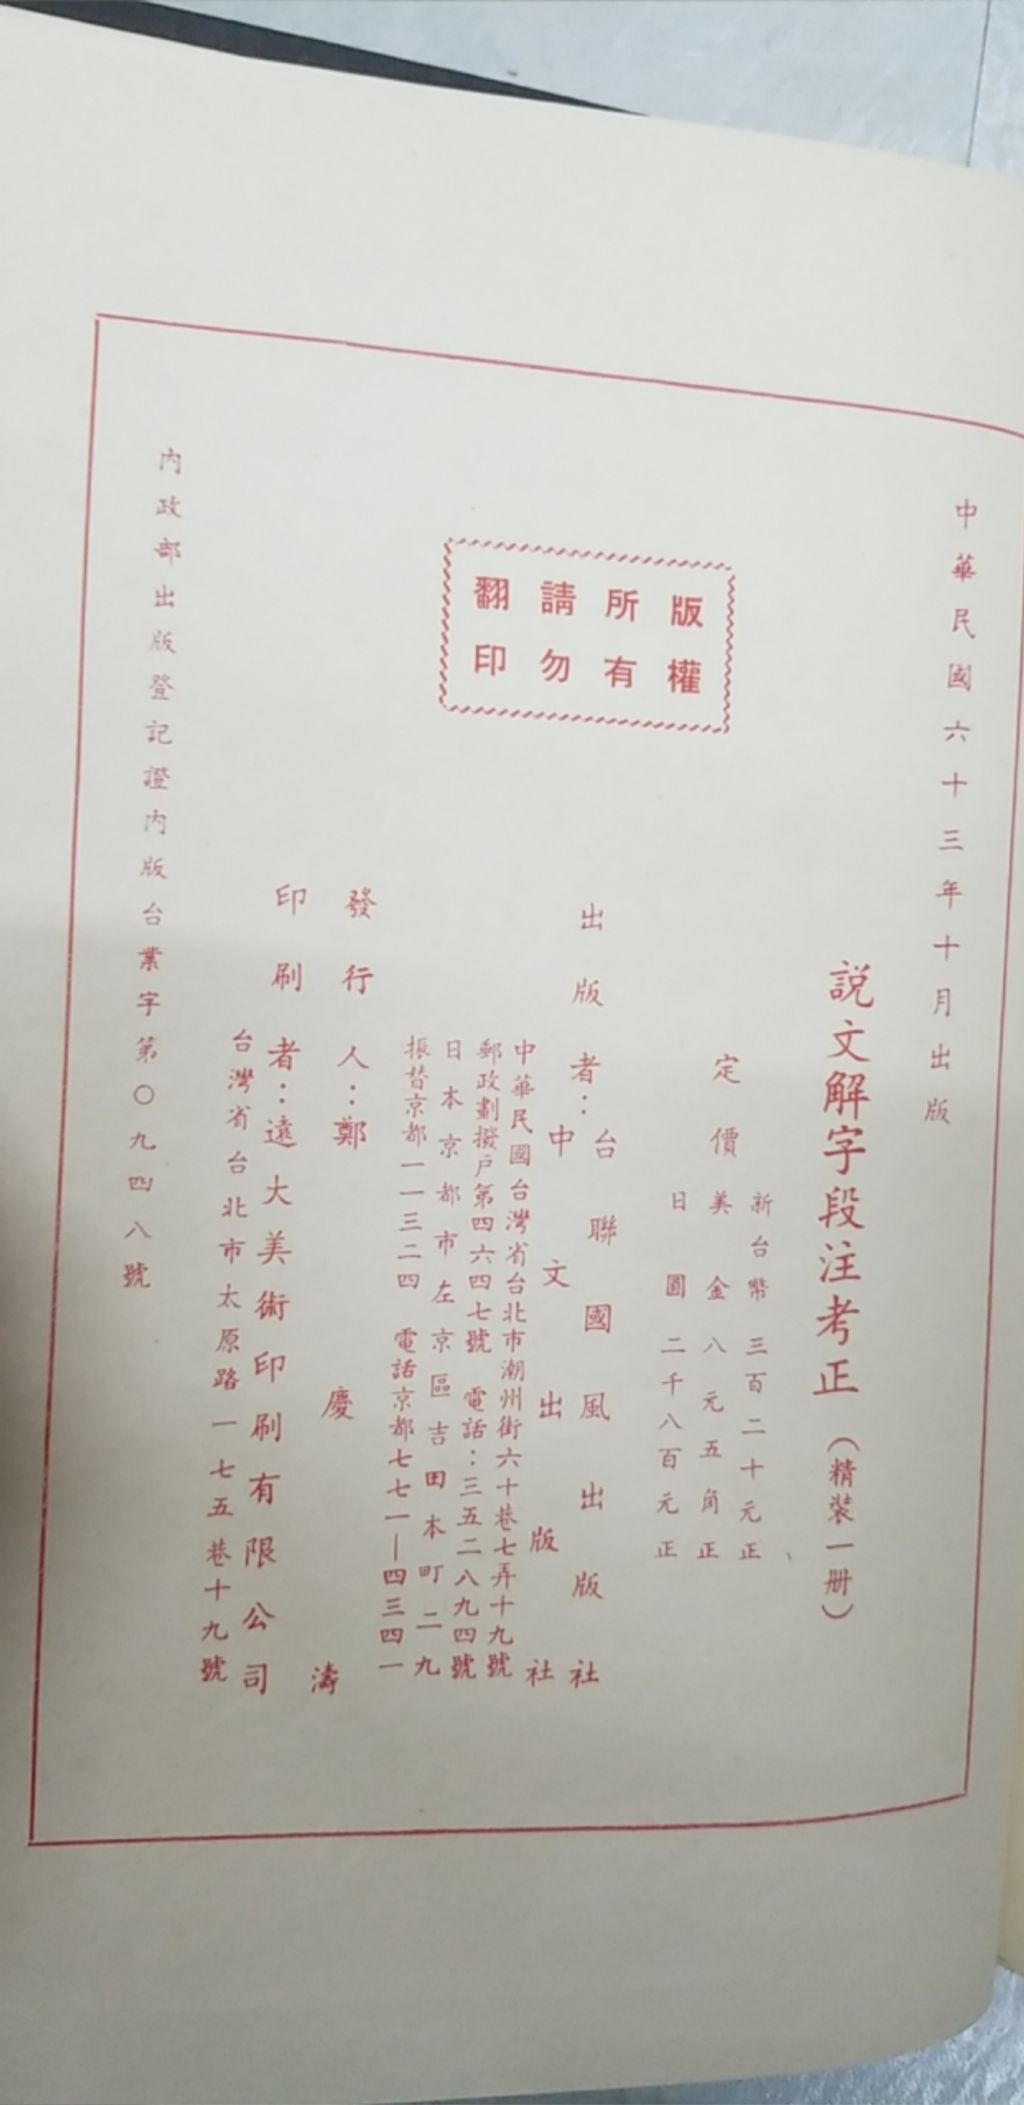 中華民國六十三年十月出版
説文解字段注考正（精裝一册）
定價
新台幣三百二十元正
美金八元五角正
日圓二千八百元正
版權所有請勿翻印
出版者：台聯國風出版社
中文出版社
中華民國台灣省台北市潮州街六十巷七弄十九號
郵政劃撥戶第四六四七號 電話：三五二八九四號
日本京都市左京區吉田本町二九
振替京都一一三二四 電話京都七七一—四三四一
發行人：鄭慶濤
印刷者：遠大美術印刷有限公司
台灣省台北市太原路一七五巷十九號
內政部出版登記證內版台業字第〇九四八號